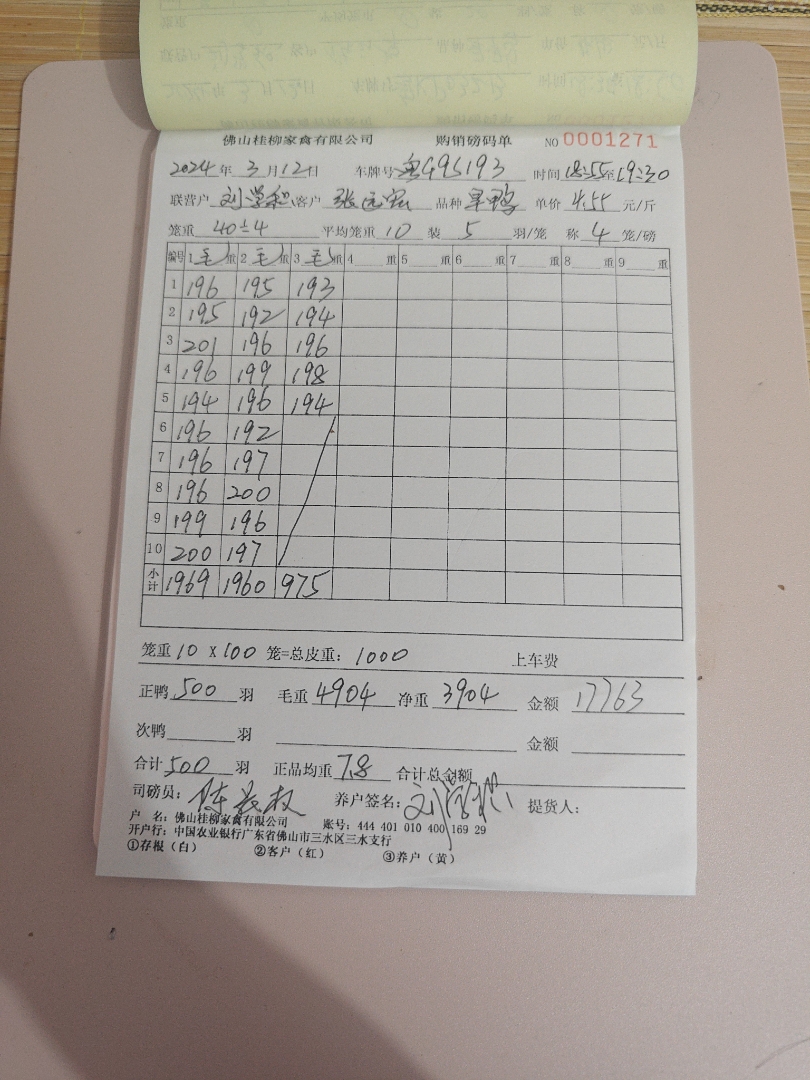 佛山桂柳家禽有限公司 购销磅码单 NO 0001271
2024年 3月12日 车牌号 粤G95193 时间 18:55至19:30
联营户 刘学 客户 张远 品种 旱鸭 单价 4.55 元/斤
笼重 40÷4 平均笼重 10 装 5 羽/笼 称 4 笼/磅
编号 1 毛重 2 毛重 3 毛重 4 重 5 重 6 重 7 重 8 重 9 重
1 196 195 193
2 195 192 194
3 201 196 196
4 196 199 198
5 194 196 194
6 196 192
7 196 197
8 196 200
9 199 196
10 200 197
小计 1969 1960 975
笼重 10 x 100 笼=总皮重: 1000 上车费
正鸭 500 羽 毛重 4904 净重 3904 金额 17763
次鸭 羽 金额
合计 500 羽 正品均重 7.8 合计总金额
司磅员: 陈 权 养户签名: 刘学 提货人:
户 名: 佛山桂柳家禽有限公司 账号: 444 401 010 400 169 29
开户行: 中国农业银行广东省佛山市三水区三水支行
①存根(白) ②客户(红) ③养户(黄)